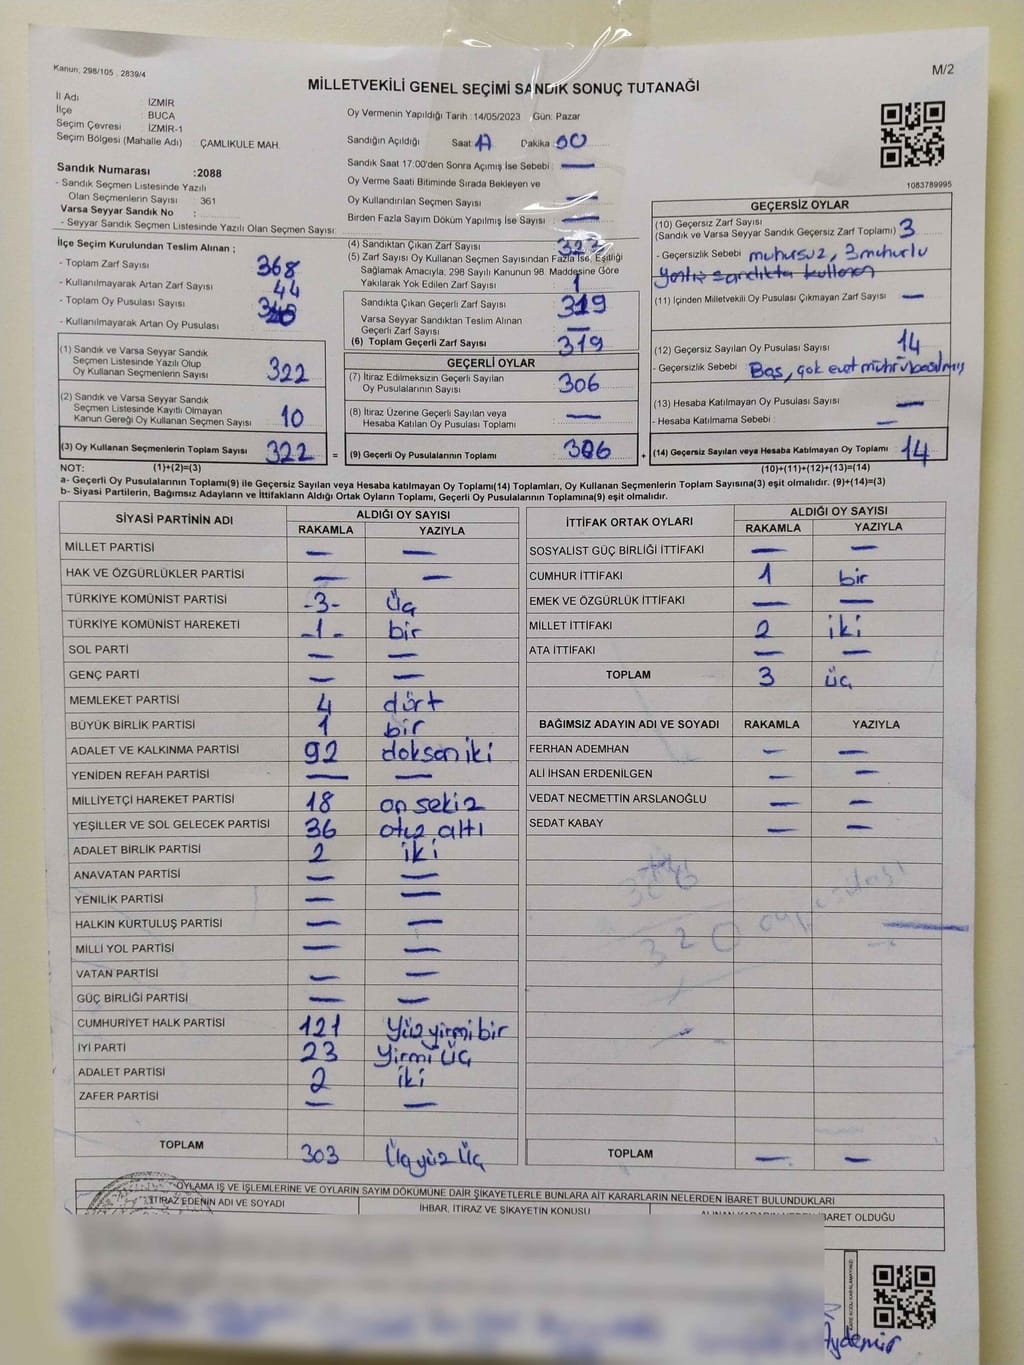 Kanun, 298/105 , 2839/4
M/2
MİLLETVEKİLİ GENEL SEÇİMİ SANDIK SONUÇ TUTANAĞI
İl Adı : İZMİR
İlçe : BUCA
Seçim Çevresi : İZMİR-1
Seçim Bölgesi (Mahalle Adı) ÇAMLIKULE MAH.
Sandık Numarası :2088
- Sandık Seçmen Listesinde Yazılı
Olan Seçmenlerin Sayısı : 361
Varsa Seyyar Sandık No :
- Seyyar Sandık Seçmen Listesinde Yazılı Olan Seçmen Sayısı:
Oy Vermenin Yapıldığı Tarih :14/05/2023 Gün: Pazar
Sandığın Açıldığı Saat Dakika 00
Sandık Saat 17:00'den Sonra Açımış İse Sebebi : —
Oy Verme Saati Bitiminde Sırada Bekleyen ve
Oy Kullandırılan Seçmen Sayısı : —
Birden Fazla Sayım Döküm Yapılmış İse Sayısı : —
1083789995
İlçe Seçim Kurulundan Teslim Alınan ;
- Toplam Zarf Sayısı : 368
- Kullanılmayarak Artan Zarf Sayısı : 44
- Toplam Oy Pusulası Sayısı :
- Kullanılmayarak Artan Oy Pusulası :
(1) Sandık ve Varsa Seyyar Sandık
Seçmen Listesinde Yazılı Olup
Oy Kullanan Seçmenlerin Sayısı : 322
(2) Sandık ve Varsa Seyyar Sandık
Seçmen Listesinde Kayıtlı Olmayan
Kanun Gereği Oy Kullanan Seçmen Sayısı : 10
(3) Oy Kullanan Seçmenlerin Toplam Sayısı : 322
(4) Sandıktan Çıkan Zarf Sayısı : 323
(5) Zarf Sayısı Oy Kullanan Seçmen Sayısından Fazla İse, Eşitliği
Sağlamak Amacıyla, 298 Sayılı Kanunun 98. Maddesine Göre
Yakılarak Yok Edilen Zarf Sayısı : 1
Sandıkta Çıkan Geçerli Zarf Sayısı : 319
Varsa Seyyar Sandıktan Teslim Alınan
Geçerli Zarf Sayısı : —
(6) Toplam Geçerli Zarf Sayısı : 319
GEÇERLİ OYLAR
(7) İtiraz Edilmeksizin Geçerli Sayılan
Oy Pusulalarının Sayısı : 306
(8) İtiraz Üzerine Geçerli Sayılan veya
Hesaba Katılan Oy Pusulası Toplamı : —
= (9) Geçerli Oy Pusulalarının Toplamı : 306
GEÇERSİZ OYLAR
(10) Geçersiz Zarf Sayısı
(Sandık ve Varsa Seyyar Sandık Geçersiz Zarf Toplamı) : 3
- Geçersizlik Sebebi : mühürsüz, 3 mühürlü
(11) İçinden Milletvekili Oy Pusulası Çıkmayan Zarf Sayısı : —
(12) Geçersiz Sayılan Oy Pusulası Sayısı : 14
- Geçersizlik Sebebi : Boş, çok evet mührü basılmış
(13) Hesaba Katılmayan Oy Pusulası Sayısı : —
- Hesaba Katılmama Sebebi : —
+ (14) Geçersiz Sayılan veya Hesaba Katılmayan Oy Toplamı : 14
NOT: (1)+(2)=(3) (10)+(11)+(12)+(13)=(14)
a- Geçerli Oy Pusulalarının Toplamı(9) ile Geçersiz Sayılan veya Hesaba katılmayan Oy Toplamı(14) Toplamları, Oy Kullanan Seçmenlerin Toplam Sayısına(3) eşit olmalıdır. (9)+(14)=(3)
b- Siyasi Partilerin, Bağımsız Adayların ve İttifakların Aldığı Ortak Oyların Toplamı, Geçerli Oy Pusulalarının Toplamına(9) eşit olmalıdır.
SİYASİ PARTİNİN ADI ALDIĞI OY SAYISI
RAKAMLA YAZIYLA
MİLLET PARTİSİ — —
HAK VE ÖZGÜRLÜKLER PARTİSİ — —
TÜRKİYE KOMÜNİST PARTİSİ -3- üç
TÜRKİYE KOMÜNİST HAREKETİ -1- bir
SOL PARTİ — —
GENÇ PARTİ — —
MEMLEKET PARTİSİ 4 dört
BÜYÜK BİRLİK PARTİSİ 1 bir
ADALET VE KALKINMA PARTİSİ 92 doksan iki
YENİDEN REFAH PARTİSİ — —
MİLLİYETÇİ HAREKET PARTİSİ 18 on sekiz
YEŞİLLER VE SOL GELECEK PARTİSİ 36 otuz altı
ADALET BİRLİK PARTİSİ 2 iki
ANAVATAN PARTİSİ — —
YENİLİK PARTİSİ — —
HALKIN KURTULUŞ PARTİSİ — —
MİLLİ YOL PARTİSİ — —
VATAN PARTİSİ — —
GÜÇ BİRLİĞİ PARTİSİ — —
CUMHURİYET HALK PARTİSİ 121 Yüz yirmi bir
İYİ PARTİ 23 Yirmi üç
ADALET PARTİSİ 2 iki
ZAFER PARTİSİ — —
TOPLAM 303 Üç yüz üç
İTTİFAK ORTAK OYLARI ALDIĞI OY SAYISI
RAKAMLA YAZIYLA
SOSYALIST GÜÇ BİRLİĞİ İTTİFAKI — —
CUMHUR İTTİFAKI 1 bir
EMEK VE ÖZGÜRLÜK İTTİFAKI — —
MİLLET İTTİFAKI 2 iki
ATA İTTİFAKI — —
TOPLAM 3 üç
BAĞIMSIZ ADAYIN ADI VE SOYADI RAKAMLA YAZIYLA
FERHAN ADEMHAN — —
ALİ İHSAN ERDENİLGEN — —
VEDAT NECMETTİN ARSLANOĞLU — —
SEDAT KABAY — —
320
TOPLAM — —
OYLAMA İŞ VE İŞLEMLERİNE VE OYLARIN SAYIM DÖKÜMÜNE DAİR ŞİKAYETLERLE BUNLARA AİT KARARLARIN NELERDEN İBARET BULUNDUKLARI
İTİRAZ EDENİN ADI VE SOYADI İHBAR, İTİRAZ VE ŞİKAYETİN KONUSU ALINAN KARARIN NEDEN İBARET OLDUĞU
Aydemir